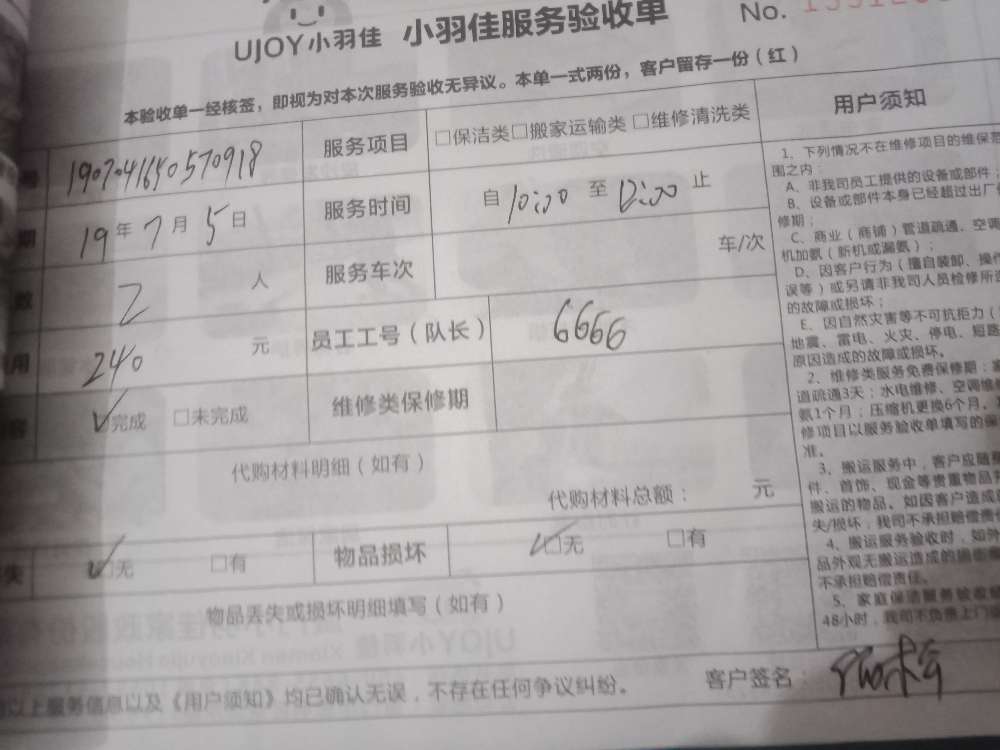 UJOY小羽佳 小羽佳服务验收单 No.
本验收单一经核签，即视为对本次服务验收无异议。本单一式两份，客户留存一份（红）
号 1907041650570918 服务项目 □保洁类□搬家运输类□维修清洗类
期 19年7月5日 服务时间 自10:00至12:00止
数 2人 服务车次 车/次
用 240元 员工工号（队长） 6666
容 ✓完成 □未完成 维修类保修期
代购材料明细（如有）
代购材料总额： 元
失 ✓无 □有 物品损坏 ✓□无 □有
物品丢失或损坏明细填写（如有）
以上服务信息以及《用户须知》均已确认无误，不存在任何争议纠纷。 客户签名：
用户须知
1、下列情况不在维修项目的维保范
围之内：
A、非我司员工提供的设备或部件；
B、设备或部件本身已经超过出厂
修期；
C、商业（商铺）管道疏通、空调
机加氨（新机或漏氨）；
D、因客户行为（擅自装卸、操作
误等）或另请非我司人员检修所
的故障或损坏；
E、因自然灾害等不可抗拒力（
地震、雷电、火灾、停电、短路
原因造成的故障或损坏。
2、维修类服务免费保修期：
道疏通3天；水电维修、空调维
氨1个月；压缩机更换6个月。
修项目以服务验收单填写的保
准。
3、搬运服务中，客户应随
件、首饰、现金等贵重物品
搬运的物品。如因客户造成
失/损坏，我司不承担赔偿责
4、搬运服务验收时，如外
品外观无搬运造成的损
不承担赔偿责任。
5、家庭保洁服务验收
48小时，我司不负责上门